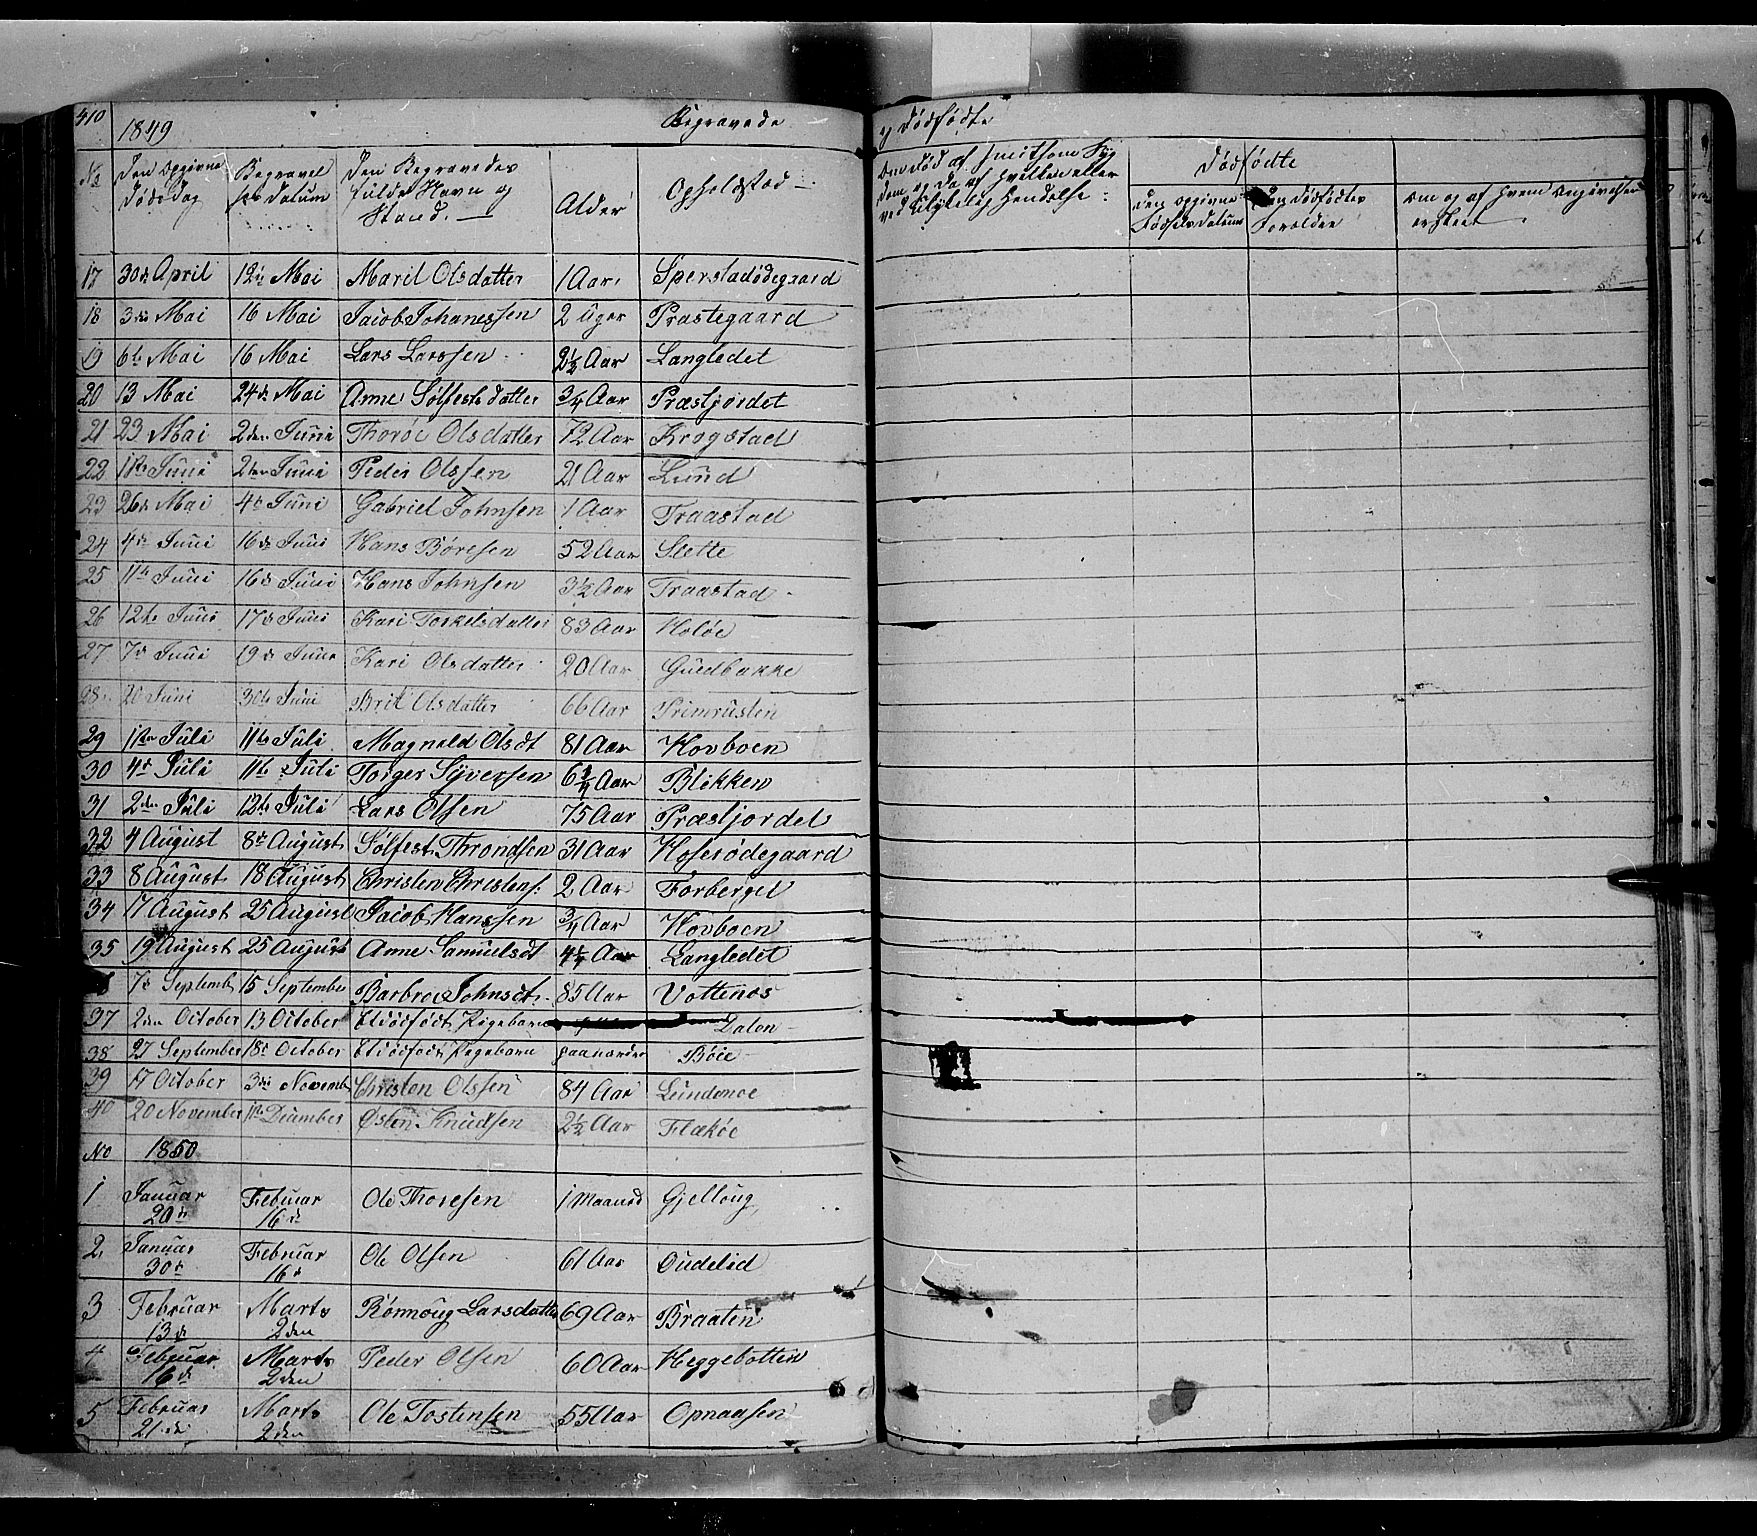 410
1849 Begravede og Dødfødte
No Den opgivne Dødsdag Begravelsens Datum Den Begravedes fulde Navn og Stand. Alder Opholdssted
Om død af smitsom Syg
dom og da af hvilken eller
ved ulykkelig Hendelse:
Dødfødte
Den opgivne Fødsels Datum Den Dødfødtes Forældre Om og af hvem Angivelsen er skeet
17 30te April 12te Mai Marit Olsdatter 1 Aar Sperstadødegaard
18 3die Mai 16 Mai Jacob Johanessen 2 Uger Præstegaard
19 6te Mai 16 Mai Lars Larssen 2½ Aar Langledet
20 13 Mai 24de Mai Anne Sølfestsdatter ¾ Aar Præstjordet
21 23 Mai 2den Juni Thoroe Olsdatter 72 Aar Krogstad
22 1ste Juni 2den Juni Peder Olssen 21 Aar Lund
23 26de Mai 4de Juni Gabriel Johnsen 1 Aar Traastad
24 4de Juni 16de Juni Hans Børesen 52 Aar Slette
25 11te Juni 16de Juni Hans Johnsen 3½ Aar Traastad
26 12te Juni 17de Juni Kari Torkelsdatter 83 Aar Holøe
27 7de Juni 19de Juni Kari Olsdatter 20 Aar Guldbakke
28 20 Juni 30te Juni Brit Olsdatter 66 Aar Trimrusten
29 1ste Juli 11te Juli Magnild Olsdt 81 Aar Hovboen
30 4de Juli 11te Juli Torger Syversen 6¾ Aar Blikken
31 2den Juli 12te Juli Lars Olsen 75 Aar Præstjordet
32 4 August 8de August Sølfest Throndsen 31 Aar Koserødegaard
33 8 August 18 August Christen Christens: 2 Aar Forberget
34 17 August 25 August Jacob Hanssen ¾ Aar Hovboen
35 19 August 25 August Anne Samuelsdt 4¼ Aar Langledet
7de Septemb 15 September Barbroe Johnsdt. 85 Aar Vottenos
37 2den October 13 October Et dødfødt Pigebarn Dalen
38 27 September 18de October Et dødfødt Pigebarn Bøie
39 17 October 3die Novemb Christen Olssen 84 Aar Lundemoe
40 20 November 11te Dicember Østen Knudsen 2½ Aar Flækøe
No 1850
1 Januar 20de Februar 16de Ole Thoresen 1 Maaned Gjelloug
2 Januar 30te Februar 16de Ole Olsen 61 Aar Oudelid
3 Februar 13de Marts 2den Rønnoug Larsdatter 69 Aar Braaten
4 Februar 16de Marts 2den Peder Olsen 60 Aar Heggebotten
5 Februar 21de Marts 2den Ole Tostensen 55 Aar Opnaasen